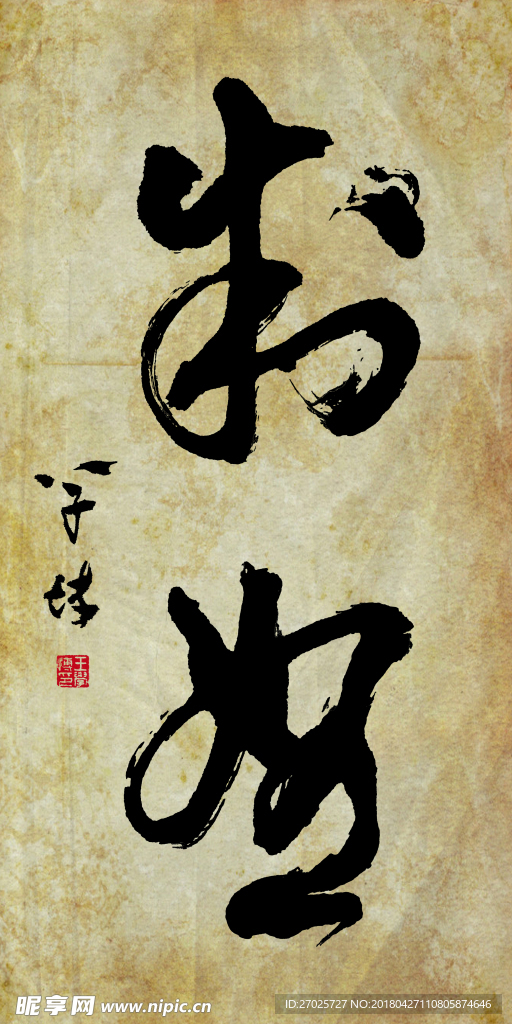 制怒
学博
王學博印
昵享网 www.nipic.cn
ID:27025727 NO:20180427110805874646